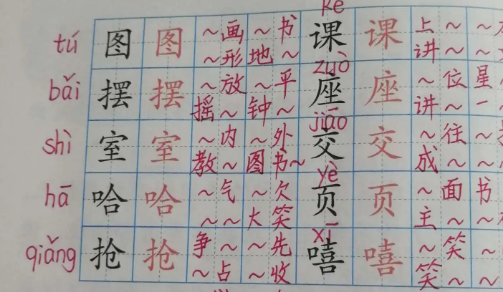 kè
tú 图 图 ～画 ～书 课 课 上～ ～
～形 地～ zuò 讲～
bǎi 摆 摆 ～放 ～平 座 座 ～位 星
摇～ 钟～ jiāo 讲～ 一
shì 室 室 ～内 ～外 交 交 ～往 ～
教～ 图书～ yè 成～
hā 哈 哈 ～气 ～欠 页 页 ～面 书
～～ 大笑 xī 主～ ～
qiǎng 抢 抢 争～ ～先 嘻 嘻 ～笑 ～
～占 ～收 笑～